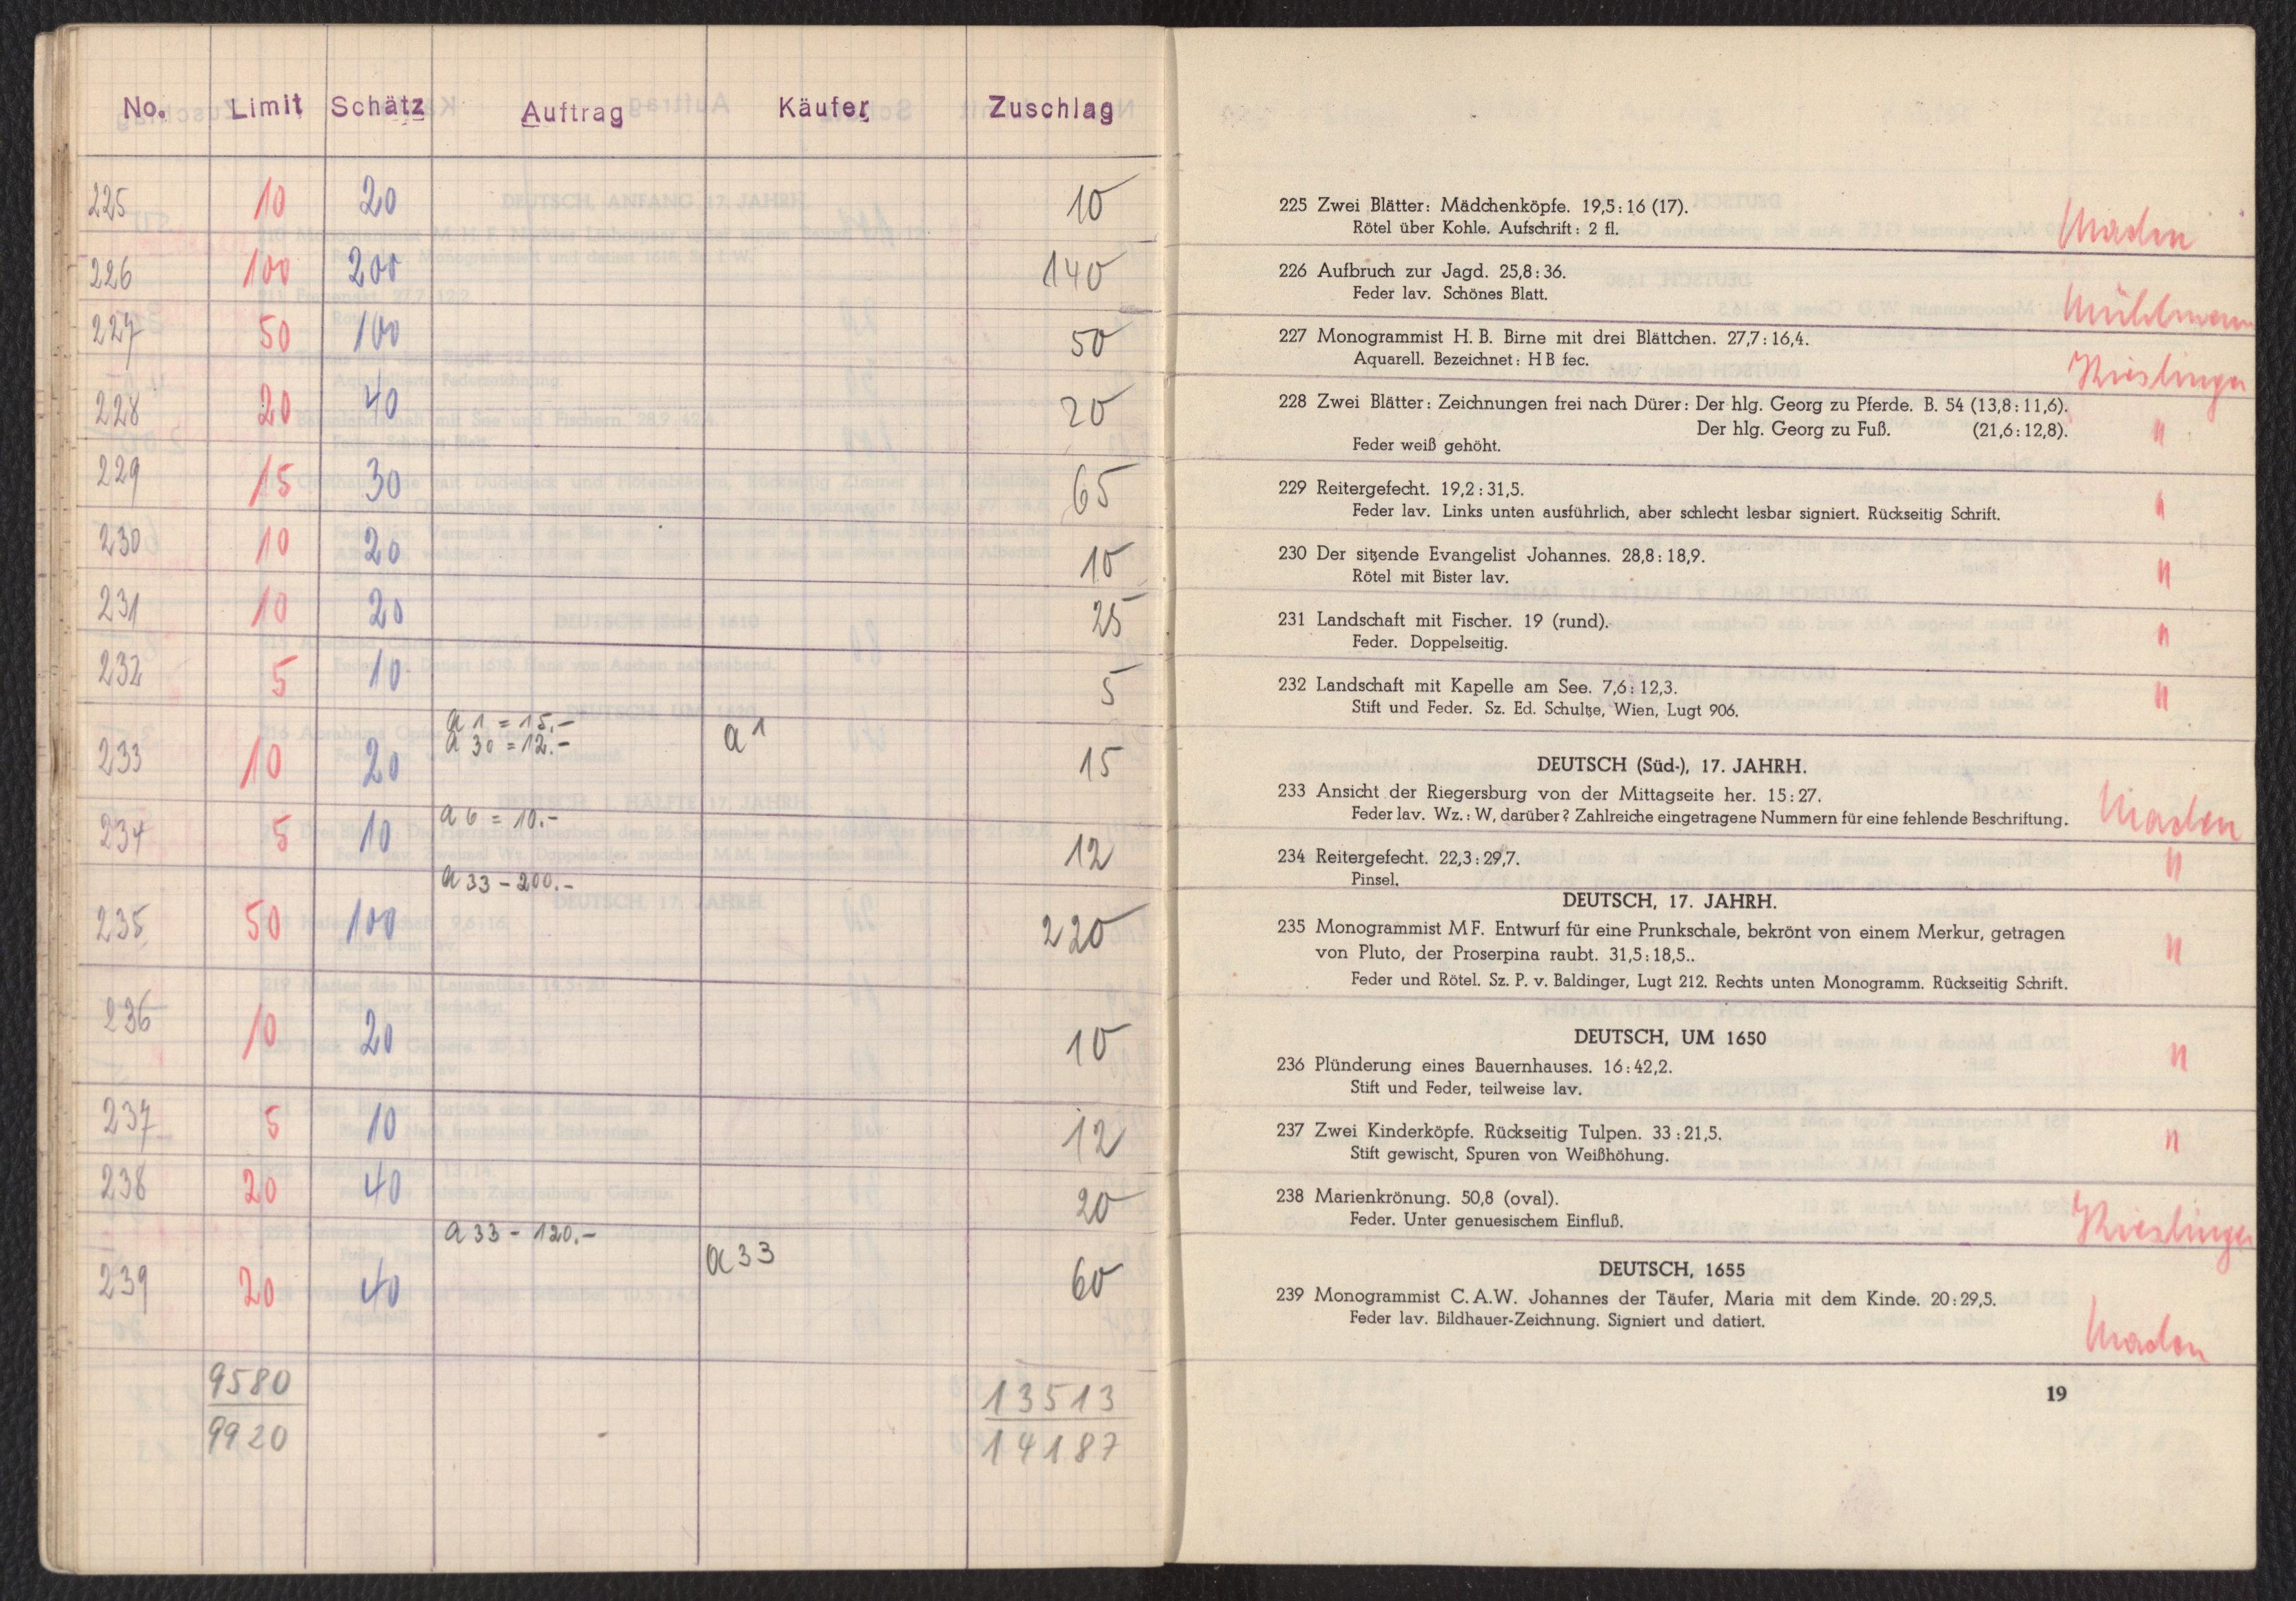 No. Limit Schätz Auftrag Käufer Zuschlag
225 10 20 10
226 100 200 140
227 50 100 50
228 20 40 20
229 15 30 65
230 10 20 10
231 10 20 25
232 5 10 5
a 1 = 15.-
a 30 = 12.-
233 10 20 a 1 15
a 6 = 10.-
234 5 10 12
a 33 - 200.-
235 50 100 220
236 10 20 10
237 5 10 12
238 20 40 20
a 33 - 120.-
239 20 40 a 33 60
9580 13513
9920 14187
225 Zwei Blätter: Mädchenköpfe. 19,5:16 (17).
Rötel über Kohle. Aufschrift: 2 fl.
226 Aufbruch zur Jagd. 25,8:36.
Feder lav. Schönes Blatt.
Mühlmann
227 Monogrammist H. B. Birne mit drei Blättchen. 27,7:16,4.
Aquarell. Bezeichnet: H B fec.
Kieslinger
228 Zwei Blätter: Zeichnungen frei nach Dürer: Der hlg. Georg zu Pferde. B. 54 (13,8:11,6).
Der hlg. Georg zu Fuß. (21,6:12,8). "
Feder weiß gehöht.
229 Reitergefecht. 19,2:31,5.
Feder lav. Links unten ausführlich, aber schlecht lesbar signiert. Rückseitig Schrift. "
230 Der sitzende Evangelist Johannes. 28,8:18,9.
Rötel mit Bister lav. "
231 Landschaft mit Fischer. 19 (rund).
Feder. Doppelseitig. "
232 Landschaft mit Kapelle am See. 7,6:12,3.
Stift und Feder. Sz. Ed. Schultze, Wien, Lugt 906. "
DEUTSCH (Süd-), 17. JAHRH.
233 Ansicht der Riegersburg von der Mittagseite her. 15:27.
Feder lav. Wz.: W, darüber? Zahlreiche eingetragene Nummern für eine fehlende Beschriftung.
234 Reitergefecht. 22,3:29,7. "
Pinsel.
DEUTSCH, 17. JAHRH.
235 Monogrammist M F. Entwurf für eine Prunkschale, bekrönt von einem Merkur, getragen
von Pluto, der Proserpina raubt. 31,5:18,5.. "
Feder und Rötel. Sz. P. v. Baldinger, Lugt 212. Rechts unten Monogramm. Rückseitig Schrift.
DEUTSCH, UM 1650
236 Plünderung eines Bauernhauses. 16:42,2. "
Stift und Feder, teilweise lav.
237 Zwei Kinderköpfe. Rückseitig Tulpen. 33:21,5. "
Stift gewischt, Spuren von Weißhöhung.
238 Marienkrönung. 50,8 (oval).
Feder. Unter genuesischem Einfluß. Kieslinger
DEUTSCH, 1655
239 Monogrammist C. A. W. Johannes der Täufer, Maria mit dem Kinde. 20:29,5.
Feder lav. Bildhauer-Zeichnung. Signiert und datiert.
19